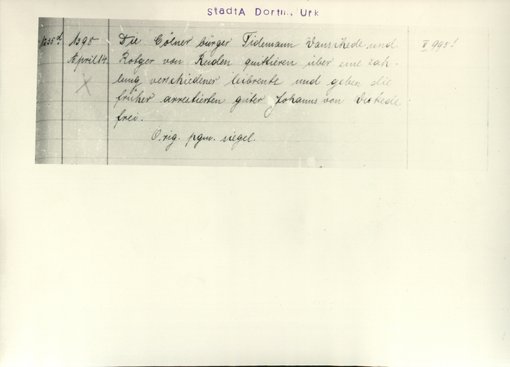 StadtA Dortm. Urk
1390 Die Cölner bürger Tidemann Vanschede und
April 14. Rotger von quittieren über eine zah-
lung verschiedener leibrente und geben die
früher arrestierten güter Johanns von
frei.
Orig. pgm. siegel.